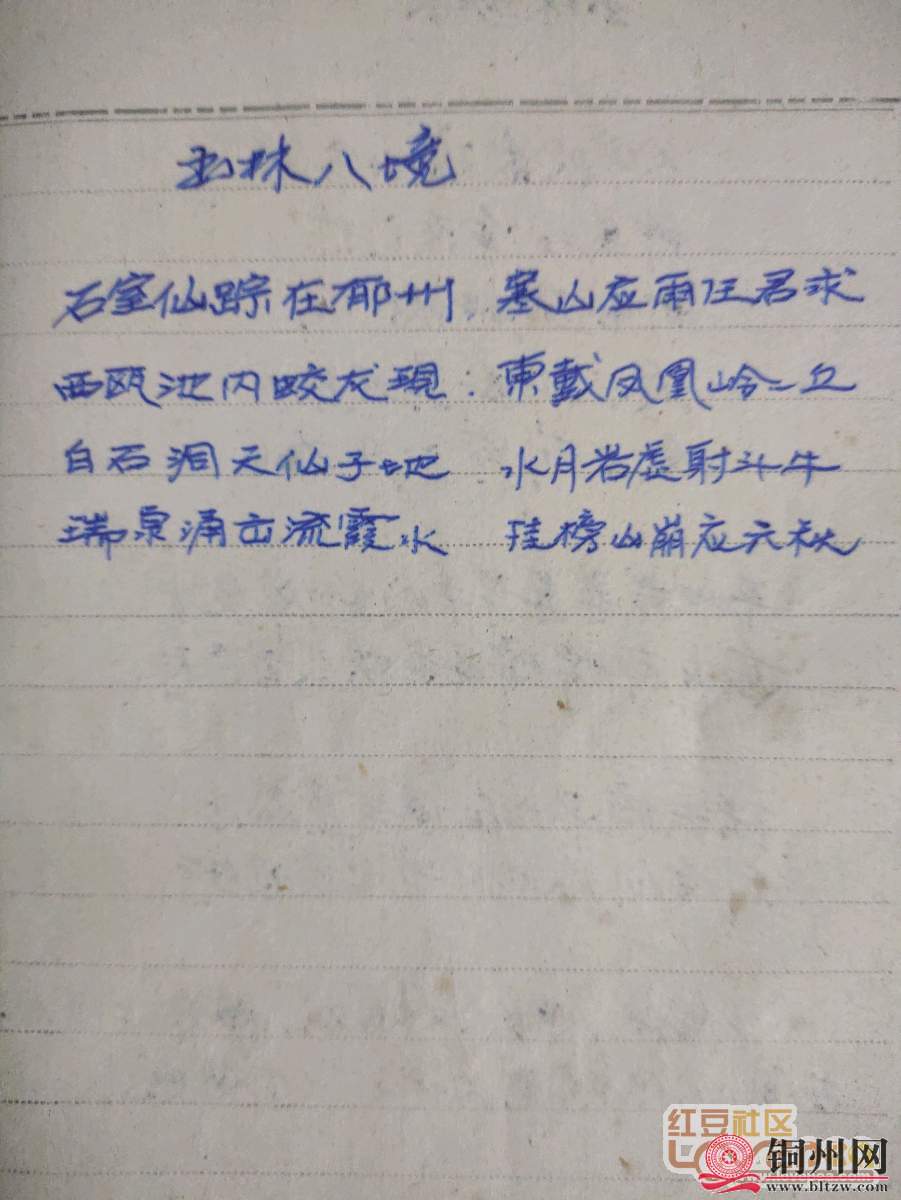 玉林八境
石室仙踪在郁州 寒山应雨任君求
西瓯池内蛟龙现 東戴凤凰岭二丘
白石洞天仙子地 水月岩虚射斗牛
瑞泉涌出流霞水 挂榜山崩应六秋
红豆社区
铜州网
www.bltzw.com